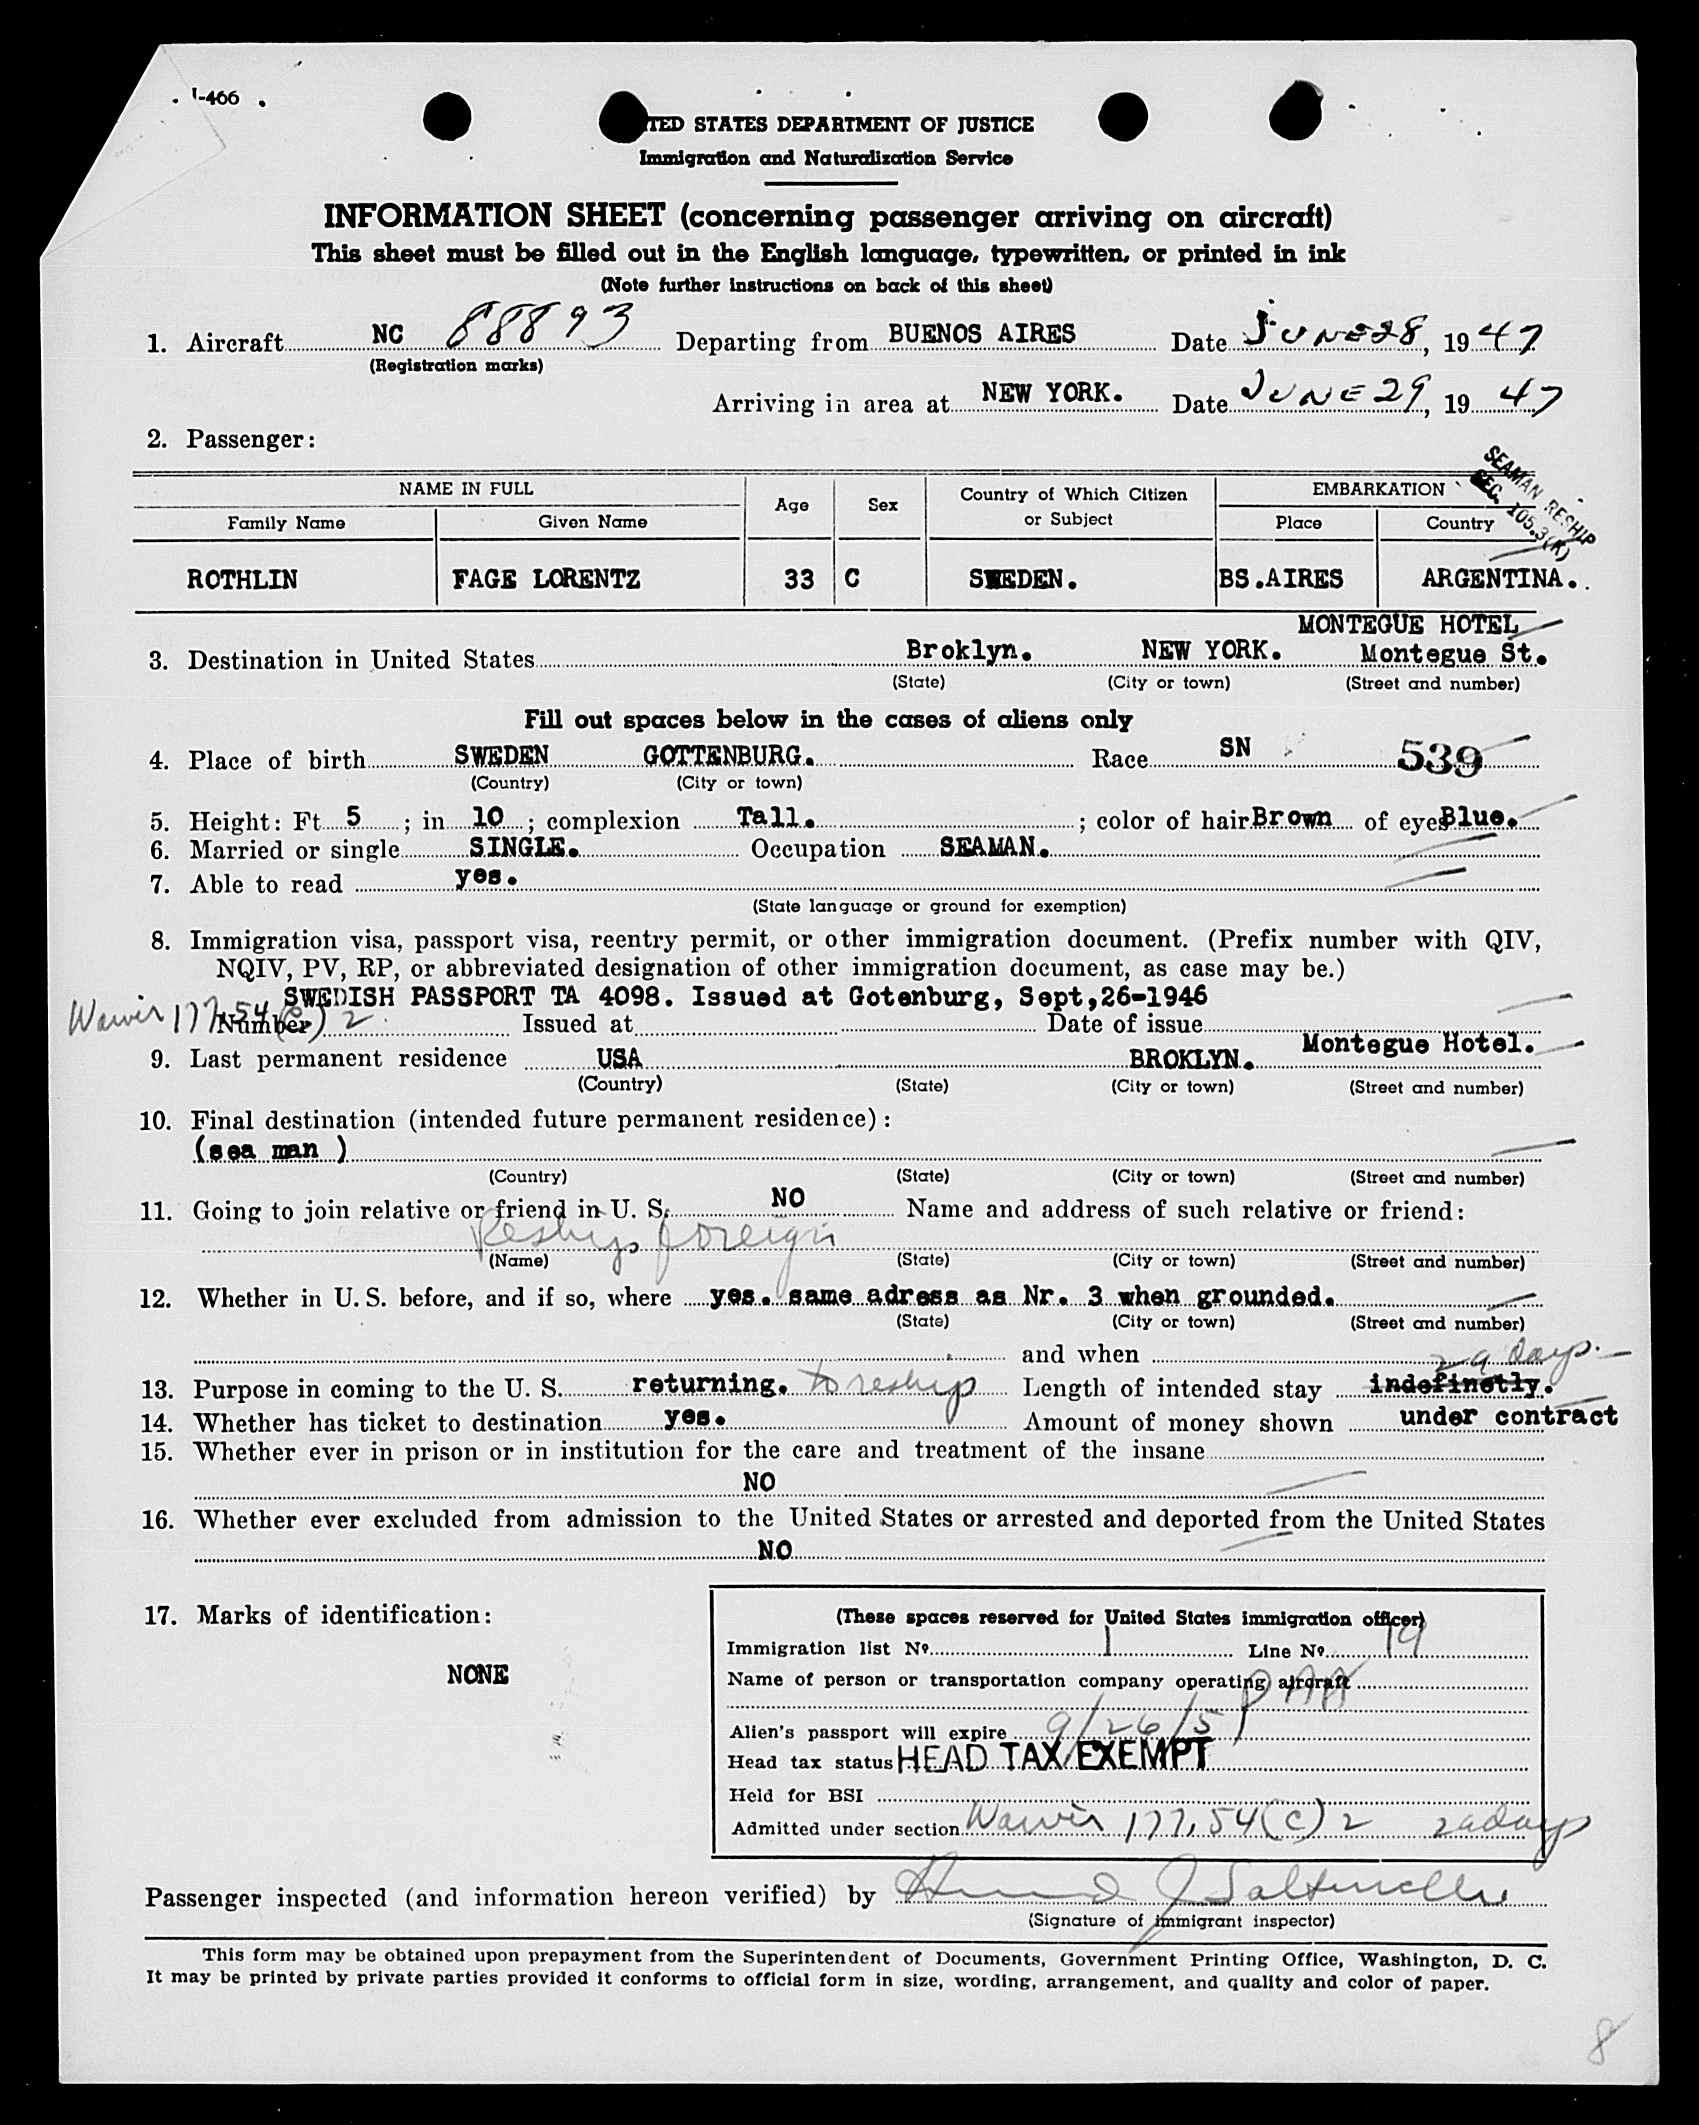 I-466
TED STATES DEPARTMENT OF JUSTICE
Immigration and Naturalization Service
INFORMATION SHEET (concerning passenger arriving on aircraft)
This sheet must be filled out in the English language, typewritten, or printed in ink
(Note further instructions on back of this sheet)
1. Aircraft NC 88893 Departing from BUENOS AIRES Date JUNE 28, 1947
(Registration marks)
Arriving in area at NEW YORK. Date JUNE 29, 1947
2. Passenger:
SEAMAN RESHIP
SEC. 105.3(K)
NAME IN FULL Age Sex Country of Which Citizen or Subject EMBARKATION
Family Name Given Name Place Country
ROTHLIN FAGE LORENTZ 33 C SWEDEN. BS.AIRES ARGENTINA.
MONTEGUE HOTEL
3. Destination in United States Broklyn. NEW YORK. Montegue St.
(State) (City or town) (Street and number)
Fill out spaces below in the cases of aliens only
4. Place of birth SWEDEN GOTTENBURG. Race SN 539
(Country) (City or town)
5. Height: Ft. 5; in 10; complexion Tall.; color of hair Brown of eyes Blue.
6. Married or single SINGLE. Occupation SEAMAN.
7. Able to read yes.
(State language or ground for exemption)
8. Immigration visa, passport visa, reentry permit, or other immigration document. (Prefix number with QIV,
NQIV, PV, RP, or abbreviated designation of other immigration document, as case may be.)
SWEDISH PASSPORT TA 4098. Issued at Gotenburg, Sept,26-1946
Waiver 177.54 (C) 2 Number Issued at Date of issue
9. Last permanent residence USA BROKLYN. Montegue Hotel.
(Country) (State) (City or town) (Street and number)
10. Final destination (intended future permanent residence):
(sea man )
(Country) (State) (City or town) (Street and number)
11. Going to join relative or friend in U. S. NO Name and address of such relative or friend:
Reship foreign
(Name) (State) (City or town) (Street and number)
12. Whether in U. S. before, and if so, where yes. same adress as Nr. 3 when grounded.
(State) (City or town) (Street and number)
and when 29 days.
13. Purpose in coming to the U. S. returning. to reship Length of intended stay indefinetly.
14. Whether has ticket to destination yes. Amount of money shown under contract
15. Whether ever in prison or in institution for the care and treatment of the insane
NO
16. Whether ever excluded from admission to the United States or arrested and deported from the United States
NO
17. Marks of identification:
NONE
(These spaces reserved for United States immigration officer)
Immigration list No. 1 Line No. 19
Name of person or transportation company operating aircraft PAA
Alien's passport will expire 9/26/51
Head tax status HEAD TAX EXEMPT
Held for BSI
Admitted under section Waiver 177.54(C) 2 29 days
Passenger inspected (and information hereon verified) by
(Signature of immigrant inspector)
This form may be obtained upon prepayment from the Superintendent of Documents, Government Printing Office, Washington, D. C.
It may be printed by private parties provided it conforms to official form in size, wording, arrangement, and quality and color of paper.
8